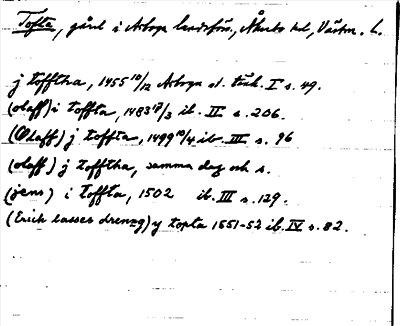 Tofta, gård i Arboga landsförs., Åkerbo hd, Västm. L.
j tofftha, 1455 10/12 Arboga st. tänk. I s. 49.
(olaff) i toffta, 1483 17/3 ib. II s. 206.
(Olaff) j toffta, 1499 10/4 ib. III s. 96
(olaff) j tofftha, samma dag och s.
(jens) i toffta, 1502 ib. III s. 129.
(Erich lasses dreng) y topta 1551-52 ib. IV s. 82.